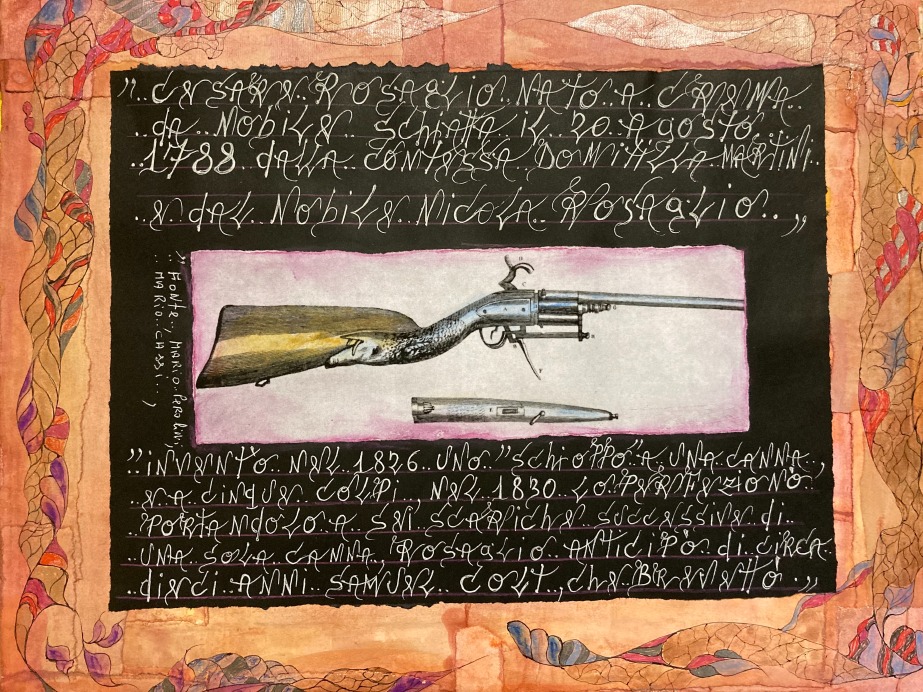 "..CESARE..ROSAGLIO..NATO..A..CREMA..
..DA..NOBILE..SCHIATTA IL..20..AGOSTO..
..1788..DALLA..CONTESSA..DOMITILLA..MARTINI..
..E DAL..NOBILE..NICOLA..ROSAGLIO..,,
"FONTE., MARIO PEROLINI,
..MARIO..CASSI..,
"INVENTÒ..NEL..1826..UNO.."SCHIOPPO"A..UNA CANNA..,
..E A CINQUE COLPI.., NEL..1830..LO PERFEZIONÒ..
..PORTANDOLO A..SEI SCARICHE..SUCCESSIVE DI..
..UNA..SOLA CANNA, ROSAGLIO..ANTICIPÒ..DI..CIRCA..
DIECI..ANNI..SAMUEL..COLT,.CHE BREVETTÒ..,,